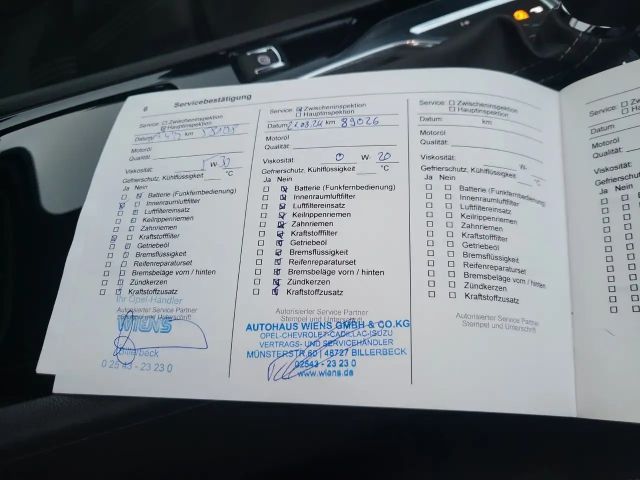 6 Servicebestätigung
Service: Zwischeninspektion
Hauptinspektion
Datum km
Motoröl
Qualität:
Viskosität: W- 30
Gefrierschutz, Kühlflüssigkeit °C
Ja Nein
Batterie (Funkfernbedienung)
Innenraumluftfilter
Luftfiltereinsatz
Keilrippenriemen
Zahnriemen
Kraftstofffilter
Getriebeöl
Bremsflüssigkeit
Reifenreparaturset
Bremsbeläge vorn / hinten
Zündkerzen
Kraftstoffzusatz
Ihr Opel-Händler
Autorisierter Service Partner
Stempel und Unterschrift
WIENS
Billerbeck
0 25 43 - 23 23 0
Service: Zwischeninspektion
Hauptinspektion
Datum 08.24 km 89026
Motoröl
Qualität:
Viskosität: 0 W- 20
Gefrierschutz, Kühlflüssigkeit °C
Ja Nein
Batterie (Funkfernbedienung)
Innenraumluftfilter
Luftfiltereinsatz
Keilrippenriemen
Zahnriemen
Kraftstofffilter
Getriebeöl
Bremsflüssigkeit
Reifenreparaturset
Bremsbeläge vorn / hinten
Zündkerzen
Kraftstoffzusatz
Autorisierter Service Partner
Stempel und Unterschrift
AUTOHAUS WIENS GMBH & CO.KG
OPEL-CHEVROLET-CADILLAC-ISUZU
VERTRAGS- UND SERVICEHÄNDLER
MÜNSTERSTR. 60 | 48727 BILLERBECK
02543 - 23 23 0
www.wiens.de
Service: Zwischeninspektion
Hauptinspektion
Datum km
Motoröl
Qualität:
Viskosität: W-
Gefrierschutz, Kühlflüssigkeit °C
Ja Nein
Batterie (Funkfernbedienung)
Innenraumluftfilter
Luftfiltereinsatz
Keilrippenriemen
Zahnriemen
Kraftstofffilter
Getriebeöl
Bremsflüssigkeit
Reifenreparaturset
Bremsbeläge vorn / hinten
Zündkerzen
Kraftstoffzusatz
Autorisierter Service Partner
Stempel und Unterschrift
Service:
Datum
Motoröl
Qualität:
Viskosität:
Gefrierschutz
Ja Nein